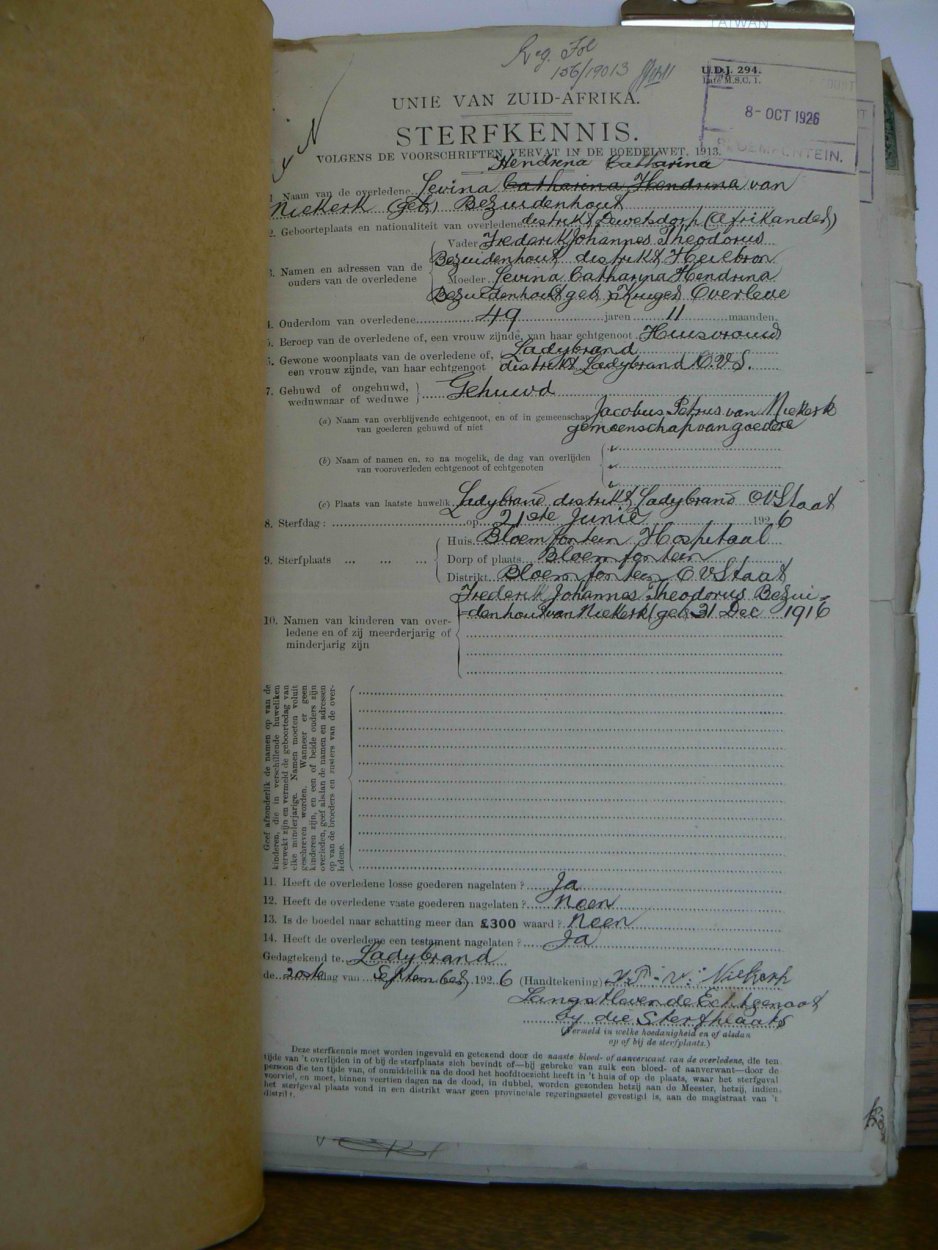 TAIWAN
Reg. Fol
156/19013
U.D.J. 294.
Late M.S.C. 1.
8-OCT 1926
BLOEMFONTEIN.
UNIE VAN ZUID-AFRIKA.
STERFKENNIS.
VOLGENS DE VOORSCHRIFTEN VERVAT IN DE BOEDELWET, 1913.
Hendrina Catharina
1. Naam van de overledene Levina Catharina Hendrina van
Niekerk (geb) Bezuidenhout
2. Geboorteplaats en nationaliteit van overledene distrikt Dewetsdorp (Afrikander)
3. Namen en adressen van de ouders van de overledene
Vader Frederik Johannes Theodorus
Bezuidenhout distrikt Heilbron
Moeder Levina Catharina Hendrina
Bezuidenhout geb. Kruger Overlede
4. Ouderdom van overledene 49 jaren 11 maanden.
5. Beroep van de overledene of, een vrouw zijnde, van haar echtgenoot Huisvrouw
6. Gewone woonplaats van de overledene of, Ladybrand
een vrouw zijnde, van haar echtgenoot distrikt Ladybrand O.V.S.
7. Gehuwd of ongehuwd, weduwnaar of weduwe Gehuwd
(a) Naam van overblijvende echtgenoot, en of in gemeenschap Jacobus Petrus van Niekerk
van goederen gehuwd of niet gemeenschap van goedere
(b) Naam of namen en, zo na mogelik, de dag van overlijden
van vooroverleden echtgenoot of echtgenoten
(c) Plaats van laatste huwelik Ladybrand distrikt Ladybrand OVStaat
8. Sterfdag : op 21ste Junie 1926
9. Sterfplaats ... ... ...
Huis Bloemfontein Hospitaal
Dorp of plaats Bloemfontein
Distrikt Bloemfontein OVStaat
Frederik Johannes Theodorus Bezui-
denhout van Niekerk (geb 31 Dec 1916
10. Namen van kinderen van over-
ledene en of zij meerderjarig of
minderjarig zijn
Geef afzonderlik de namen op van de
kinderen, die in verschillende huweliken
verwekt zijn en vermeld de geboortedag van
elke minderjarige. Namen moeten voluit
geschreven worden. Wanneer er geen
kinderen zijn, en een of beide ouders zijn
overleden, geef alsdan de namen en adressen
op van de broeders en zusters van de over-
ledene.
11. Heeft de overledene losse goederen nagelaten ? Ja
12. Heeft de overledene vaste goederen nagelaten ? Neen
13. Is de boedel naar schatting meer dan £300 waard ? Neen
14. Heeft de overledene een testament nagelaten ? Ja
Gedagtekend te Ladybrand
de 20ste dag van September 1926 (Handtekening) J. P. v. Niekerk
Langstlevende Echtgenoot
by die Sterfplaats
(Vermeld in welke hoedanigheid en of alsdan
op of bij de sterfplaats.)
Deze sterfkennis moet worden ingevuld en getekend door de naaste bloed- of aanverwant van de overledene, die ten
tijde van 't overlijden in of bij de sterfplaats zich bevindt of—bij gebreke van zulk een bloed- of aanverwant—door de
persoon die ten tijde van, of onmiddellik na de dood het hoofdtoezicht heeft in 't huis of op de plaats, waar het sterfgeval
voorviel, en moet, binnen veertien dagen na de dood, in dubbel, worden gezonden hetzij aan de Meester, hetzij, indien
het sterfgeval plaats vond in een distrikt waar geen provinciale regeringszetel gevestigd is, aan de magistraat van 't
distrikt.